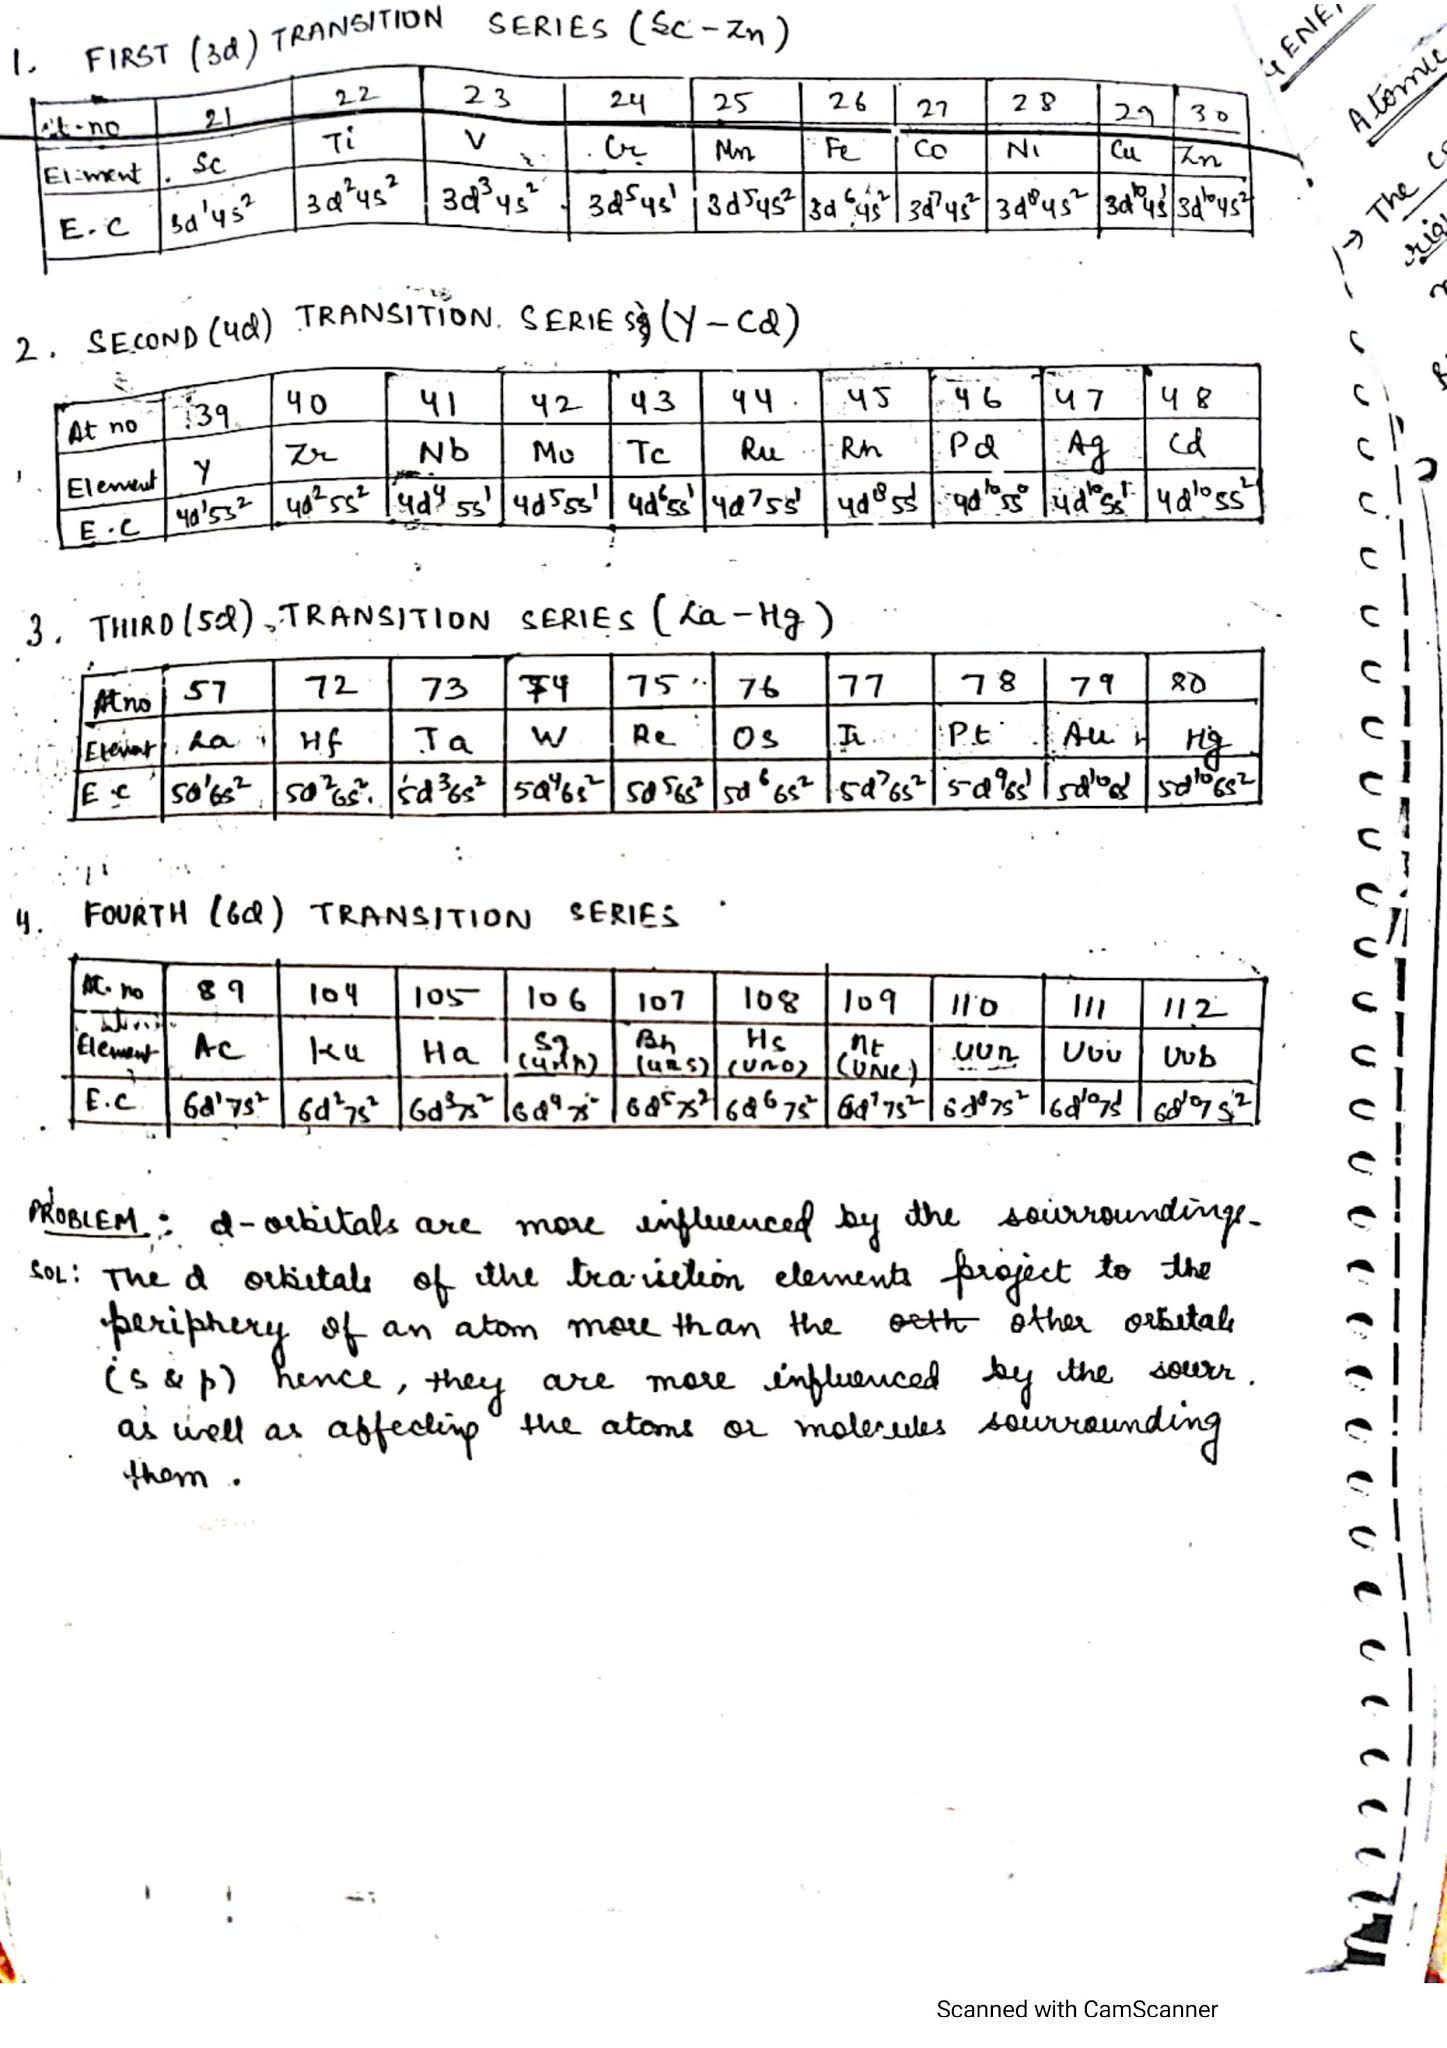 1. FIRST (3d) TRANSITION SERIES (Sc - Zn)
At. no 21 22 23 24 25 26 27 28 29 30
Element Sc Ti V Cr Mn Fe Co Ni Cu Zn
E.C 3d¹4s² 3d²4s² 3d³4s² 3d⁵4s¹ 3d⁵4s² 3d⁶4s² 3d⁷4s² 3d⁸4s² 3d¹⁰4s¹ 3d¹⁰4s²
2. SECOND (4d) TRANSITION SERIES (Y - Cd)
At no 39 40 41 42 43 44 45 46 47 48
Element Y Zr Nb Mo Tc Ru Rh Pd Ag Cd
E.C 4d¹5s² 4d²5s² 4d⁴5s¹ 4d⁵5s¹ 4d⁶5s¹ 4d⁷5s¹ 4d⁸5s¹ 4d¹⁰5s⁰ 4d¹⁰5s¹ 4d¹⁰5s²
3. THIRD (5d) TRANSITION SERIES (La - Hg)
At no 57 72 73 74 75 76 77 78 79 80
Element La Hf Ta W Re Os Ir Pt Au Hg
E.C 5d¹6s² 5d²6s² 5d³6s² 5d⁴6s² 5d⁵6s² 5d⁶6s² 5d⁷6s² 5d⁹6s¹ 5d¹⁰6s¹ 5d¹⁰6s²
4. FOURTH (6d) TRANSITION SERIES
At. no 89 104 105 106 107 108 109 110 111 112
Element Ac Ku Ha Sg (Unh) Bh (Uns) Hs (Uno) Mt (Une) Uun Uuu Uub
E.C 6d¹7s² 6d²7s² 6d³7s² 6d⁴7s² 6d⁵7s² 6d⁶7s² 6d⁷7s² 6d⁸7s² 6d¹⁰7s¹ 6d¹⁰7s²
PROBLEM : d-orbitals are more influenced by the sourroundings.
SOL: The d orbitals of the transition elements project to the
periphery of an atom more than the oeth other orbitals
(s & p) hence, they are more influenced by the sourr.
as well as affecting the atoms or molecules sourrounding
them.
Atomic
→ The
Scanned with CamScanner